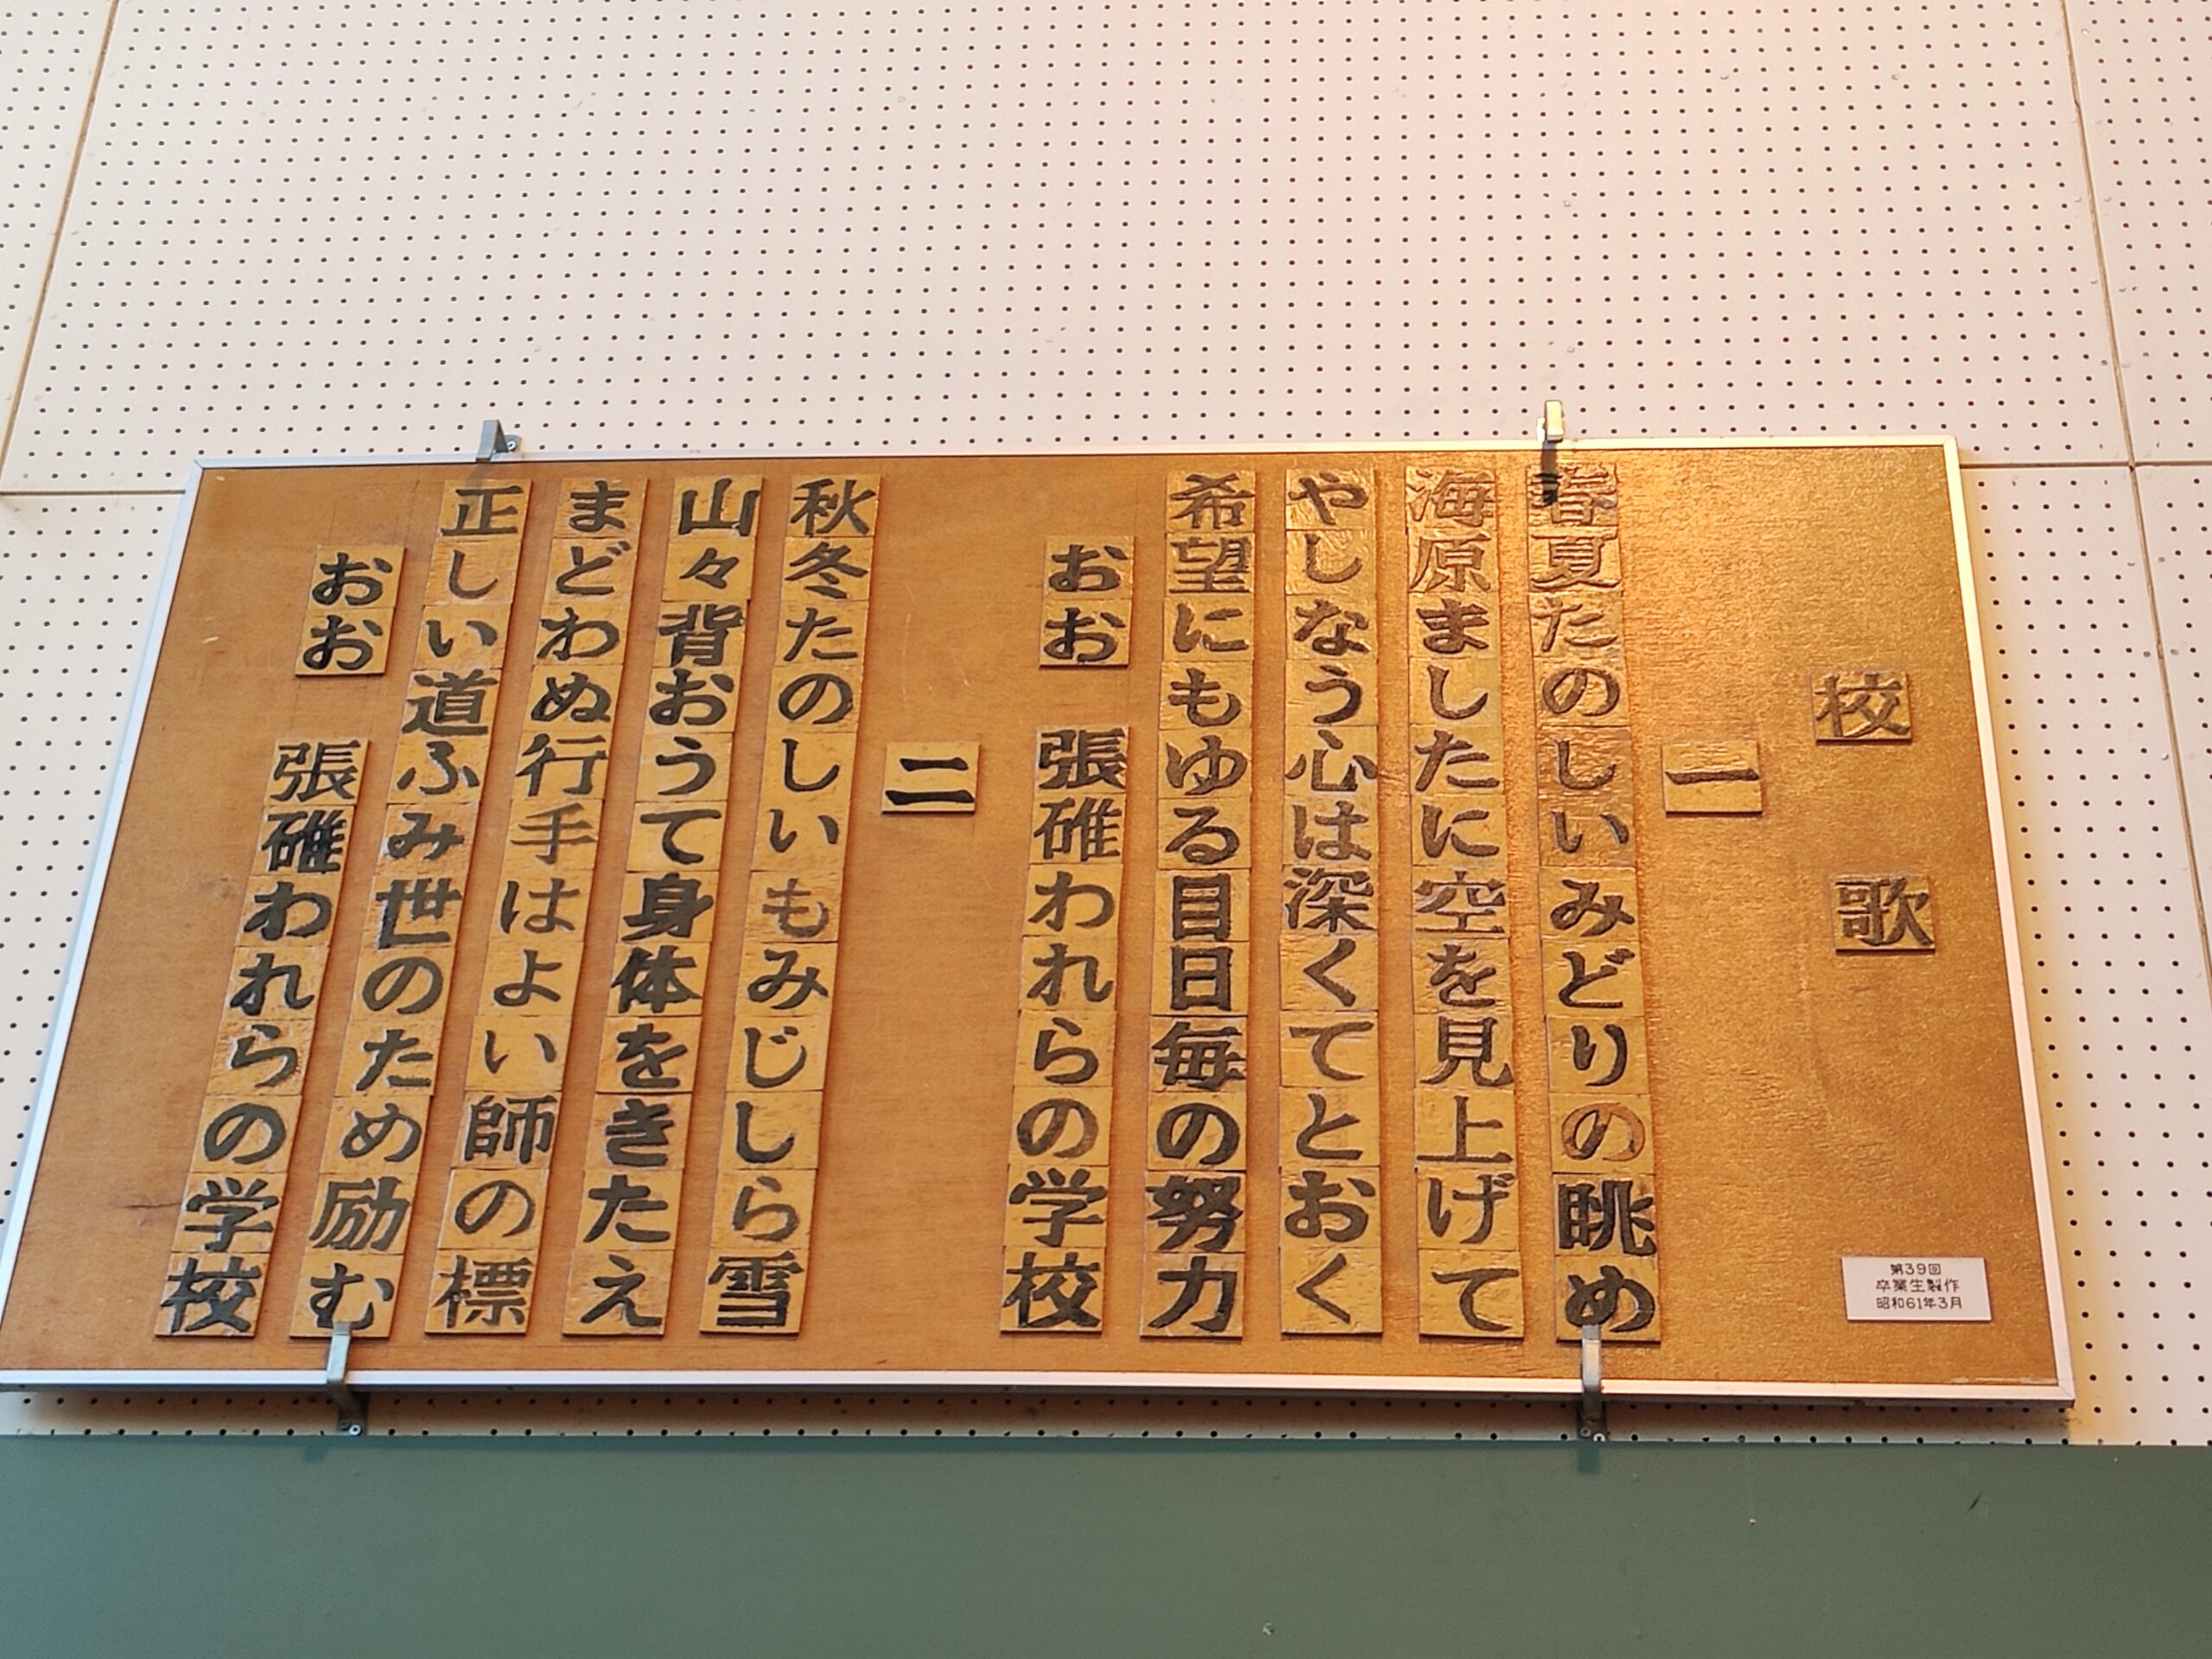 校歌
一
春夏たのしいみどりの眺め
海原ましたに空を見上げて
やしなう心は深くてとおく
希望にもゆる目日毎の努力
おお 張碓われらの学校
二
秋冬たのしいもみじしら雪
山々背おうて身体をきたえ
まどわぬ行手はよい師の標
正しい道ふみ世のため励む
おお 張碓われらの学校
第39回
卒業生製作
昭和61年3月